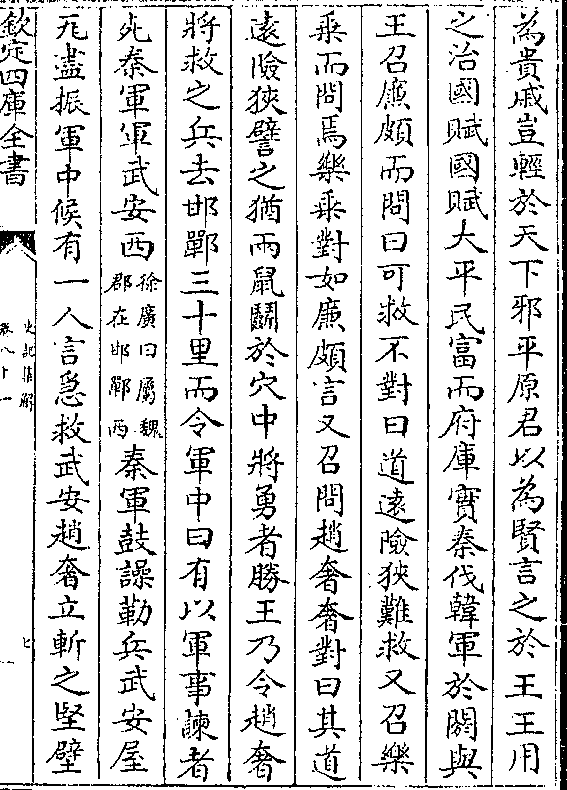 為貴戚豈輕於天下邪平原君以為賢言之於王王用
之治國賦國賦大平民富而府庫實秦伐韓軍於閼與
王召廉頗而問曰可救不對曰道遠險狹難救又召樂
乗而問焉樂乗對如廉頗言又召問趙奢奢對曰其道
遠險狹譬之猶兩鼠鬬於穴中將勇者勝王乃令趙奢
將救之兵去邯鄲三十里而令軍中曰有以軍事諫者
死秦軍軍武安西徐廣曰屬魏郡在邯鄲西秦軍鼓譟勒兵武安屋
瓦盡振軍中候有一人言急救武安趙奢立斬之堅壁
欽定四庫全書
史記集解
卷八十一
七